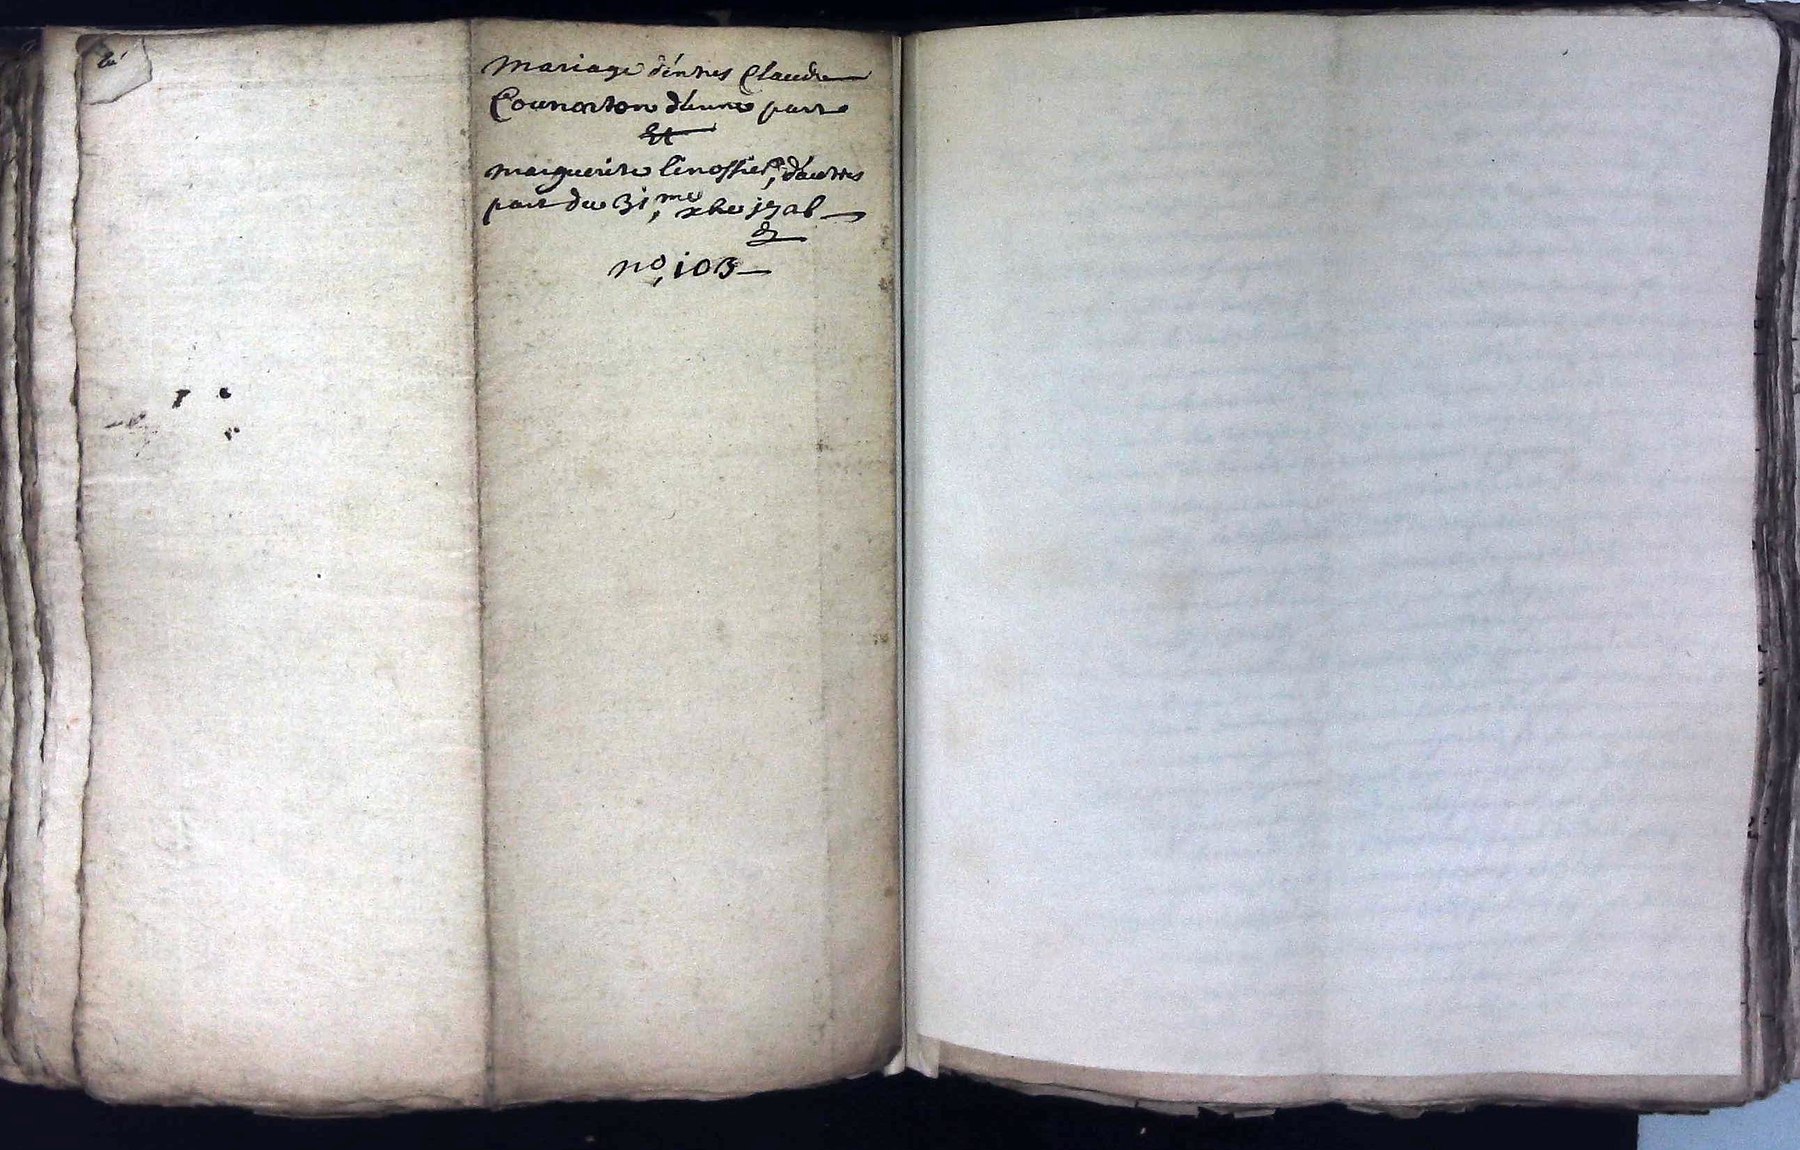 mariage d'entres Claude
Courorton d'aune part
Et
marguerite linossier, d'autres
part du 31,me xbre
no, 103